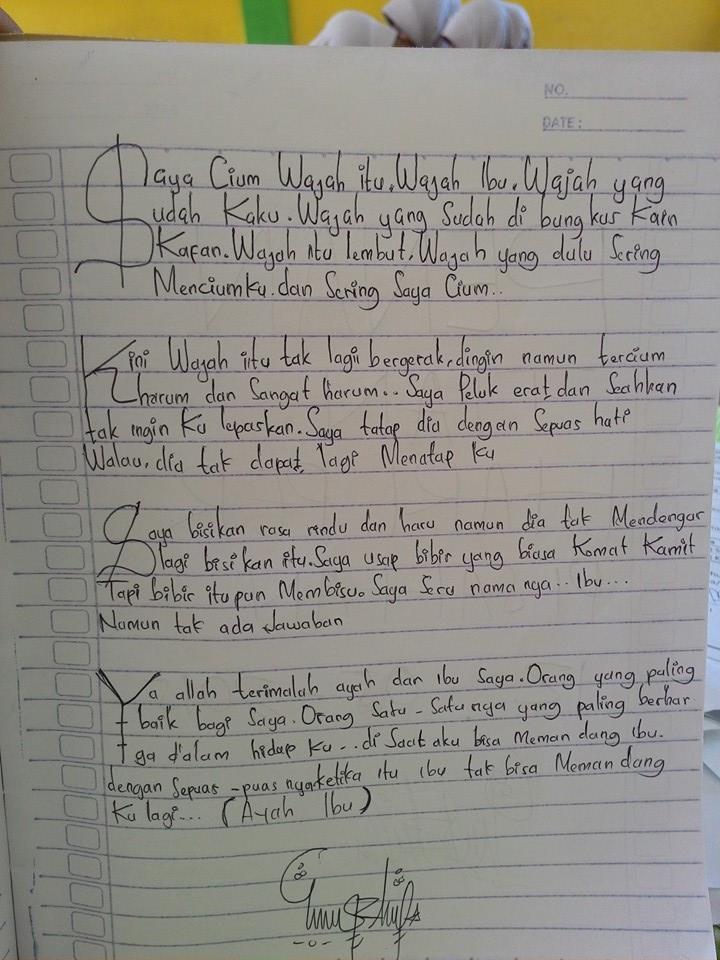 NO.
DATE:
Saya Cium Wajah itu, Wajah Ibu. Wajah yang
Sudah Kaku. Wajah yang Sudah di bungkus Kain
Kafan. Wajah itu lembut, Wajah yang dulu Sering
Menciumku. dan Sering Saya Cium..
Kini Wajah iitu tak lagii bergerak, dingin namun tercium
harum dan Sangat harum.. Saya Peluk erat dan Seahkan
tak ingin Ku lepaskan. Saya tatap dia dengan Sepuas hati
Walau, dia tak dapat lagi Menatap Ku
Saya bisikan rasa rindu dan haru namun dia tak Mendengar
lagi bisikan itu. Saya usap bibir yang biasa Komat Kamit
Tapi bibir itu pun Membisu. Saya Seru nama nya.. Ibu...
Namun tak ada Jawaban
Ya allah terimalah ayah dan ibu Saya. Orang yang paling
baik bagi Saya. Orang Satu-Satu nya yang paling berhar
ga d'alam hidup Ku... di Saat aku bisa Meman dang ibu.
dengan Sepuas-puas nya ketika itu ibu tak bisa Meman dang
Ku lagi... (Ayah Ibu)